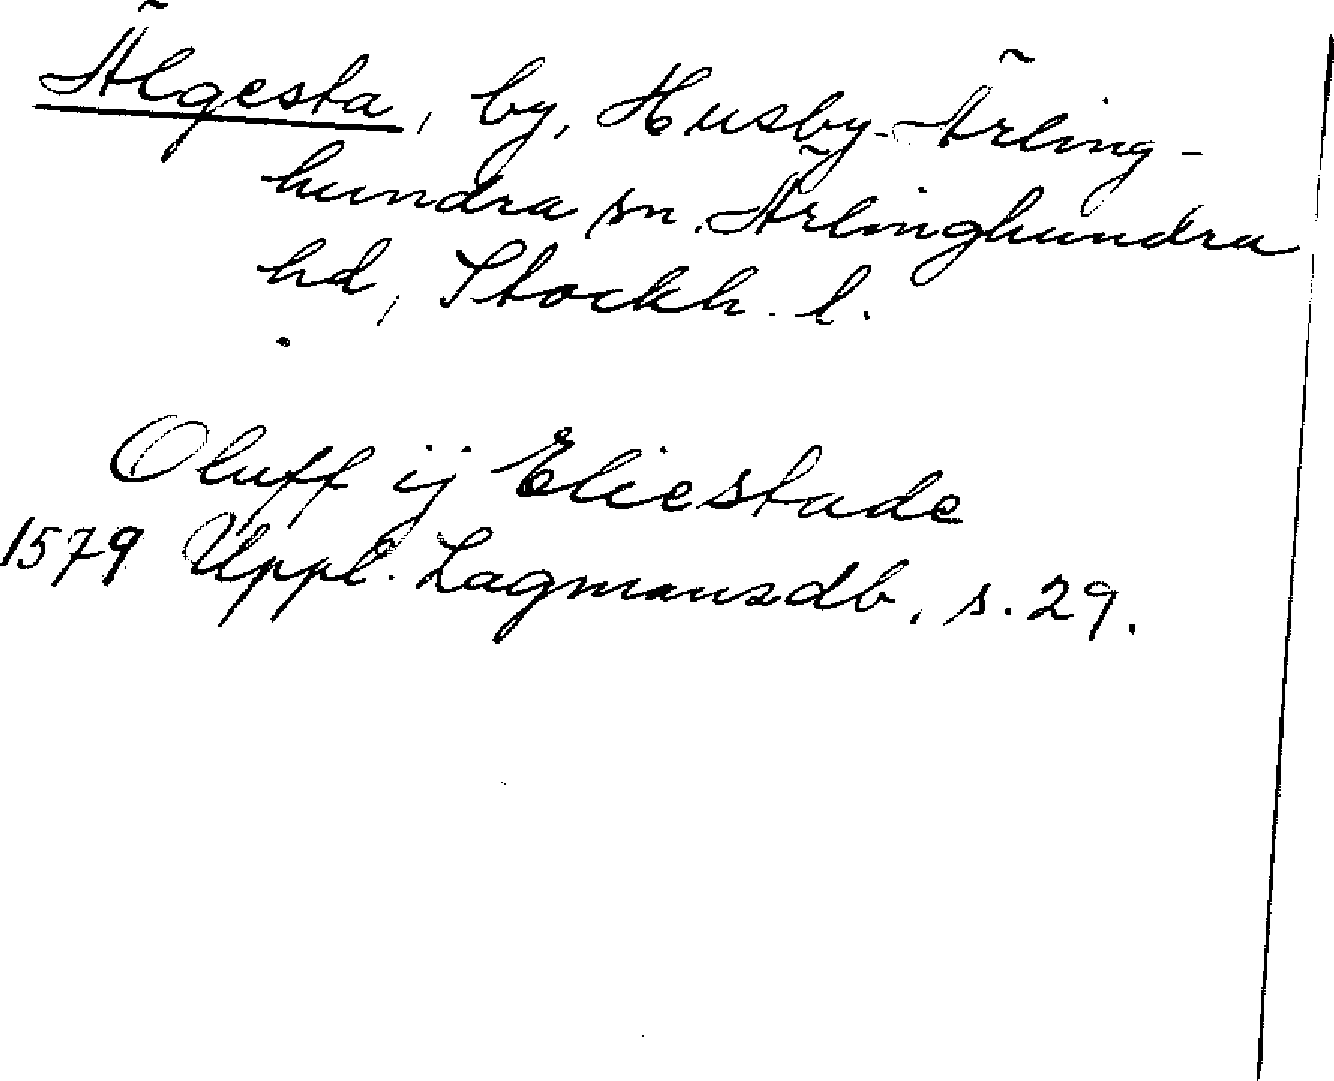 Älgesta, by, Husby-Ärling-
hundra sn. Ärlinghundra
hd, Stockh. l.
Oluff ij Eliestade
1579 Uppl. Lagmansdb. s. 29.